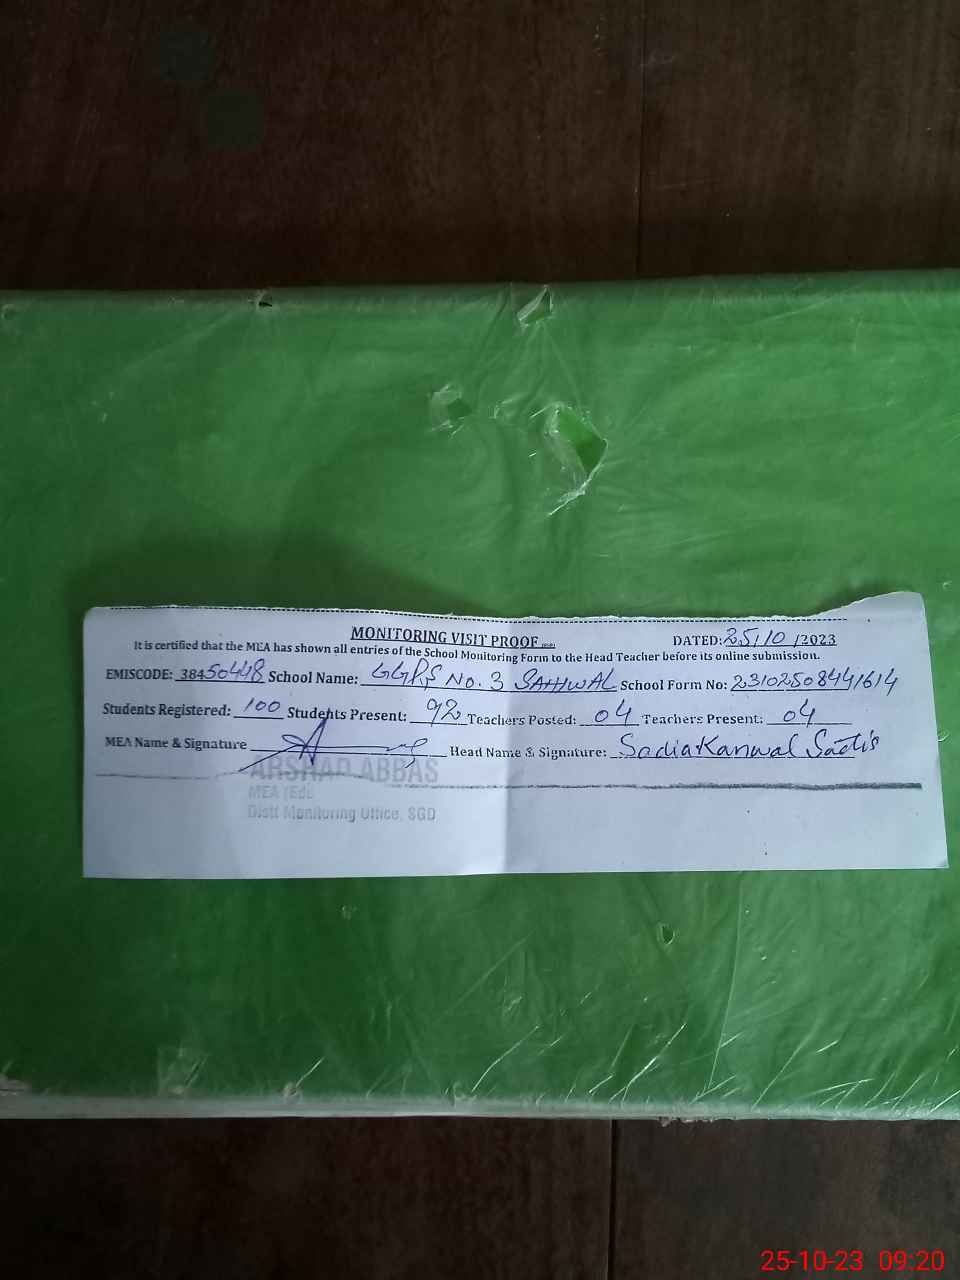 MONITORING VISIT PROOF DATED: 25/10/2023
It is certified that the MEA has shown all entries of the School Monitoring Form to the Head Teacher before its online submission.
EMISCODE: 38450448 School Name: GGPS No. 3 SAHIWAL School Form No: 23102508441614
Students Registered: 100 Students Present: 92 Teachers Posted: 04 Teachers Present: 04
MEA Name & Signature Head Name & Signature: Sadia Kanwal
ARSHAD ABBAS
MEA (Edu)
Distt Monitoring Office, SGD
25-10-23 09:20